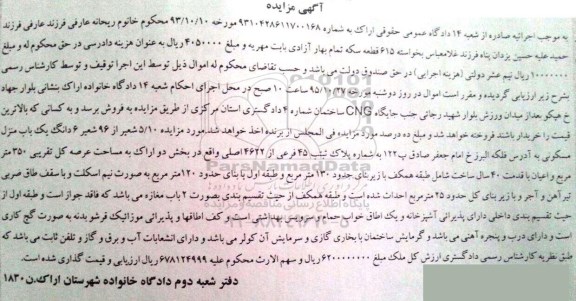 آگهی مزایده
به موجب اجرائیه صادره از شعبه ۱۴ دادگاه عمومی حقوقی اراک به شماره ۹۳۱۰۴۲۸۶۱۱۷۰۰۱۶۸ مورخه ۹۳/۱۰/۱۰ محکوم خانوم ریحانه عارفی فرزند عارفی فرزند
حمید علیه حسین یزدان پناه فرزند غلامعباس بخواسته ۶۱۵ قطعه سکه تمام بهار آزادی بابت مهریه و مبلغ ۴۰۵۰۰۰۰ ریال به عنوان هزینه دادرسی در حق محکوم له و مبلغ
۱۰۰۰۰۰۰۰ ریال نیم عشر دولتی (هزینه اجرایی) در حق صندوق دولت می باشد و حسب تقاضای محکوم له اموال ذیل توسط این اجرا توقیف و توسط کارشناس رسمی
بشرح زیر ارزیابی گردیده و مقرر است اموال در روز دوشنبه مورخه ساعت ۱۰ صبح در محل اجرای احکام شعبه ۱۴ دادگاه خانواده اراک بنشانی بلوار جهاد
خ هپکو بعد از میدان ورزش بلوار شهید رجائی جنب جایگاه CNG ساختمان شماره ۴ دادگستری استان مرکزی از طریق مزایده به فروش برسد و به کسانی که بالاترین
قیمت را خریدار باشند فروخته خواهد شد و مبلغ ده درصد مورد مزایده فی المجلس از برنده اخذ خواهد شد. مورد مزایده ۵/۱۰ شعیر از ۹۶ شعیر ۶ دانگ یک باب منزل
مسکونی به آدرس فلکه البرز خ امام جعفر صادق پ ۱۲۲ به شماره پلاک ثبتی ۴۵ فرعی از ۴۶۲۲ اصلی واقع در بخش دو اراک به مساحت عرصه کل تقریبی ۳۵۰ متر
مربع و اعیان با قدمت ۴۰ سال ساخت شامل طبقه همکف با زیربنای حدود ۱۳۰ متر مربع و طبقه اول با بنای حدود ۱۲۰ متر مربع به صورت نیم اسکلت و با سقف طاق ضربی
تیرآهن و آجر و با زیر بنای کل حدود ۲۵۰ مترمربع احداث شده است و طبقه همکف از حیث تقسیم بندی بصورت ۲ باب مغازه می باشد که فاقد جواز است و طبقه اول از
حیث تقسیم بندی داخلی دارای پذیرائی آشپزخانه و یک اطاق خواب حمام و سرویس بهداشتی است و کف اطاقها و پذیرائی موزائیک فرش و بدنه به صورت گچ کاری
است و دارای درب و پنجره آهنی می باشد و گرمایش ساختمان با بخاری گازی و سرمایش آن کولر می باشد و دارای انشعابات آب و برق و گاز و تلفن ثابت می باشد که
طبق نظریه کارشناس رسمی دادگستری ارزش کل ملک مبلغ ۶۲۰۰۰۰۰۰۰۰ ریال و سهم الارث محکوم علیه ۶۷۸۱۲۴۹۹۹ ریال ارزیابی و قیمت گذاری شده است.
دفتر شعبه دوم دادگاه خانواده شهرستان اراک. ن ۱۸۳۰